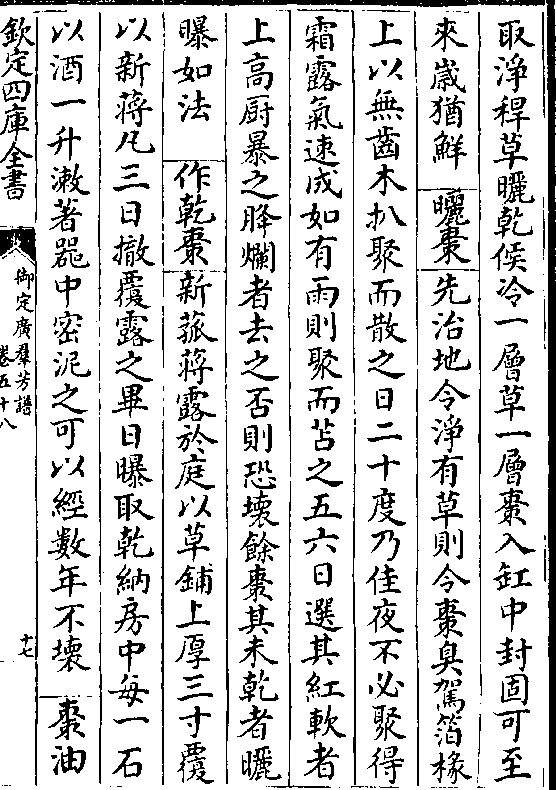 取淨稈草曬乾候冷一層草一層棗入缸中封固可至
來嵗猶鮮　曬棗　先治地令淨有草則令棗臭駕箔椽
上以無齒木扒聚而散之日二十度乃佳夜不必聚得
霜露氣速成如有雨則聚而苫之五六日選其紅軟者
上高厨暴之胮爛者去之否則恐壞餘棗其未乾者曬
曝如法　作乾棗　新菰蔣露於庭以草鋪上厚三寸覆
以新蔣凡三日撤覆露之畢日曝取乾納房中每一石
以酒一升漱著器中密泥之可以經數年不壞　棗油
欽定四庫全書
御定廣羣芳譜
卷五十八
十七